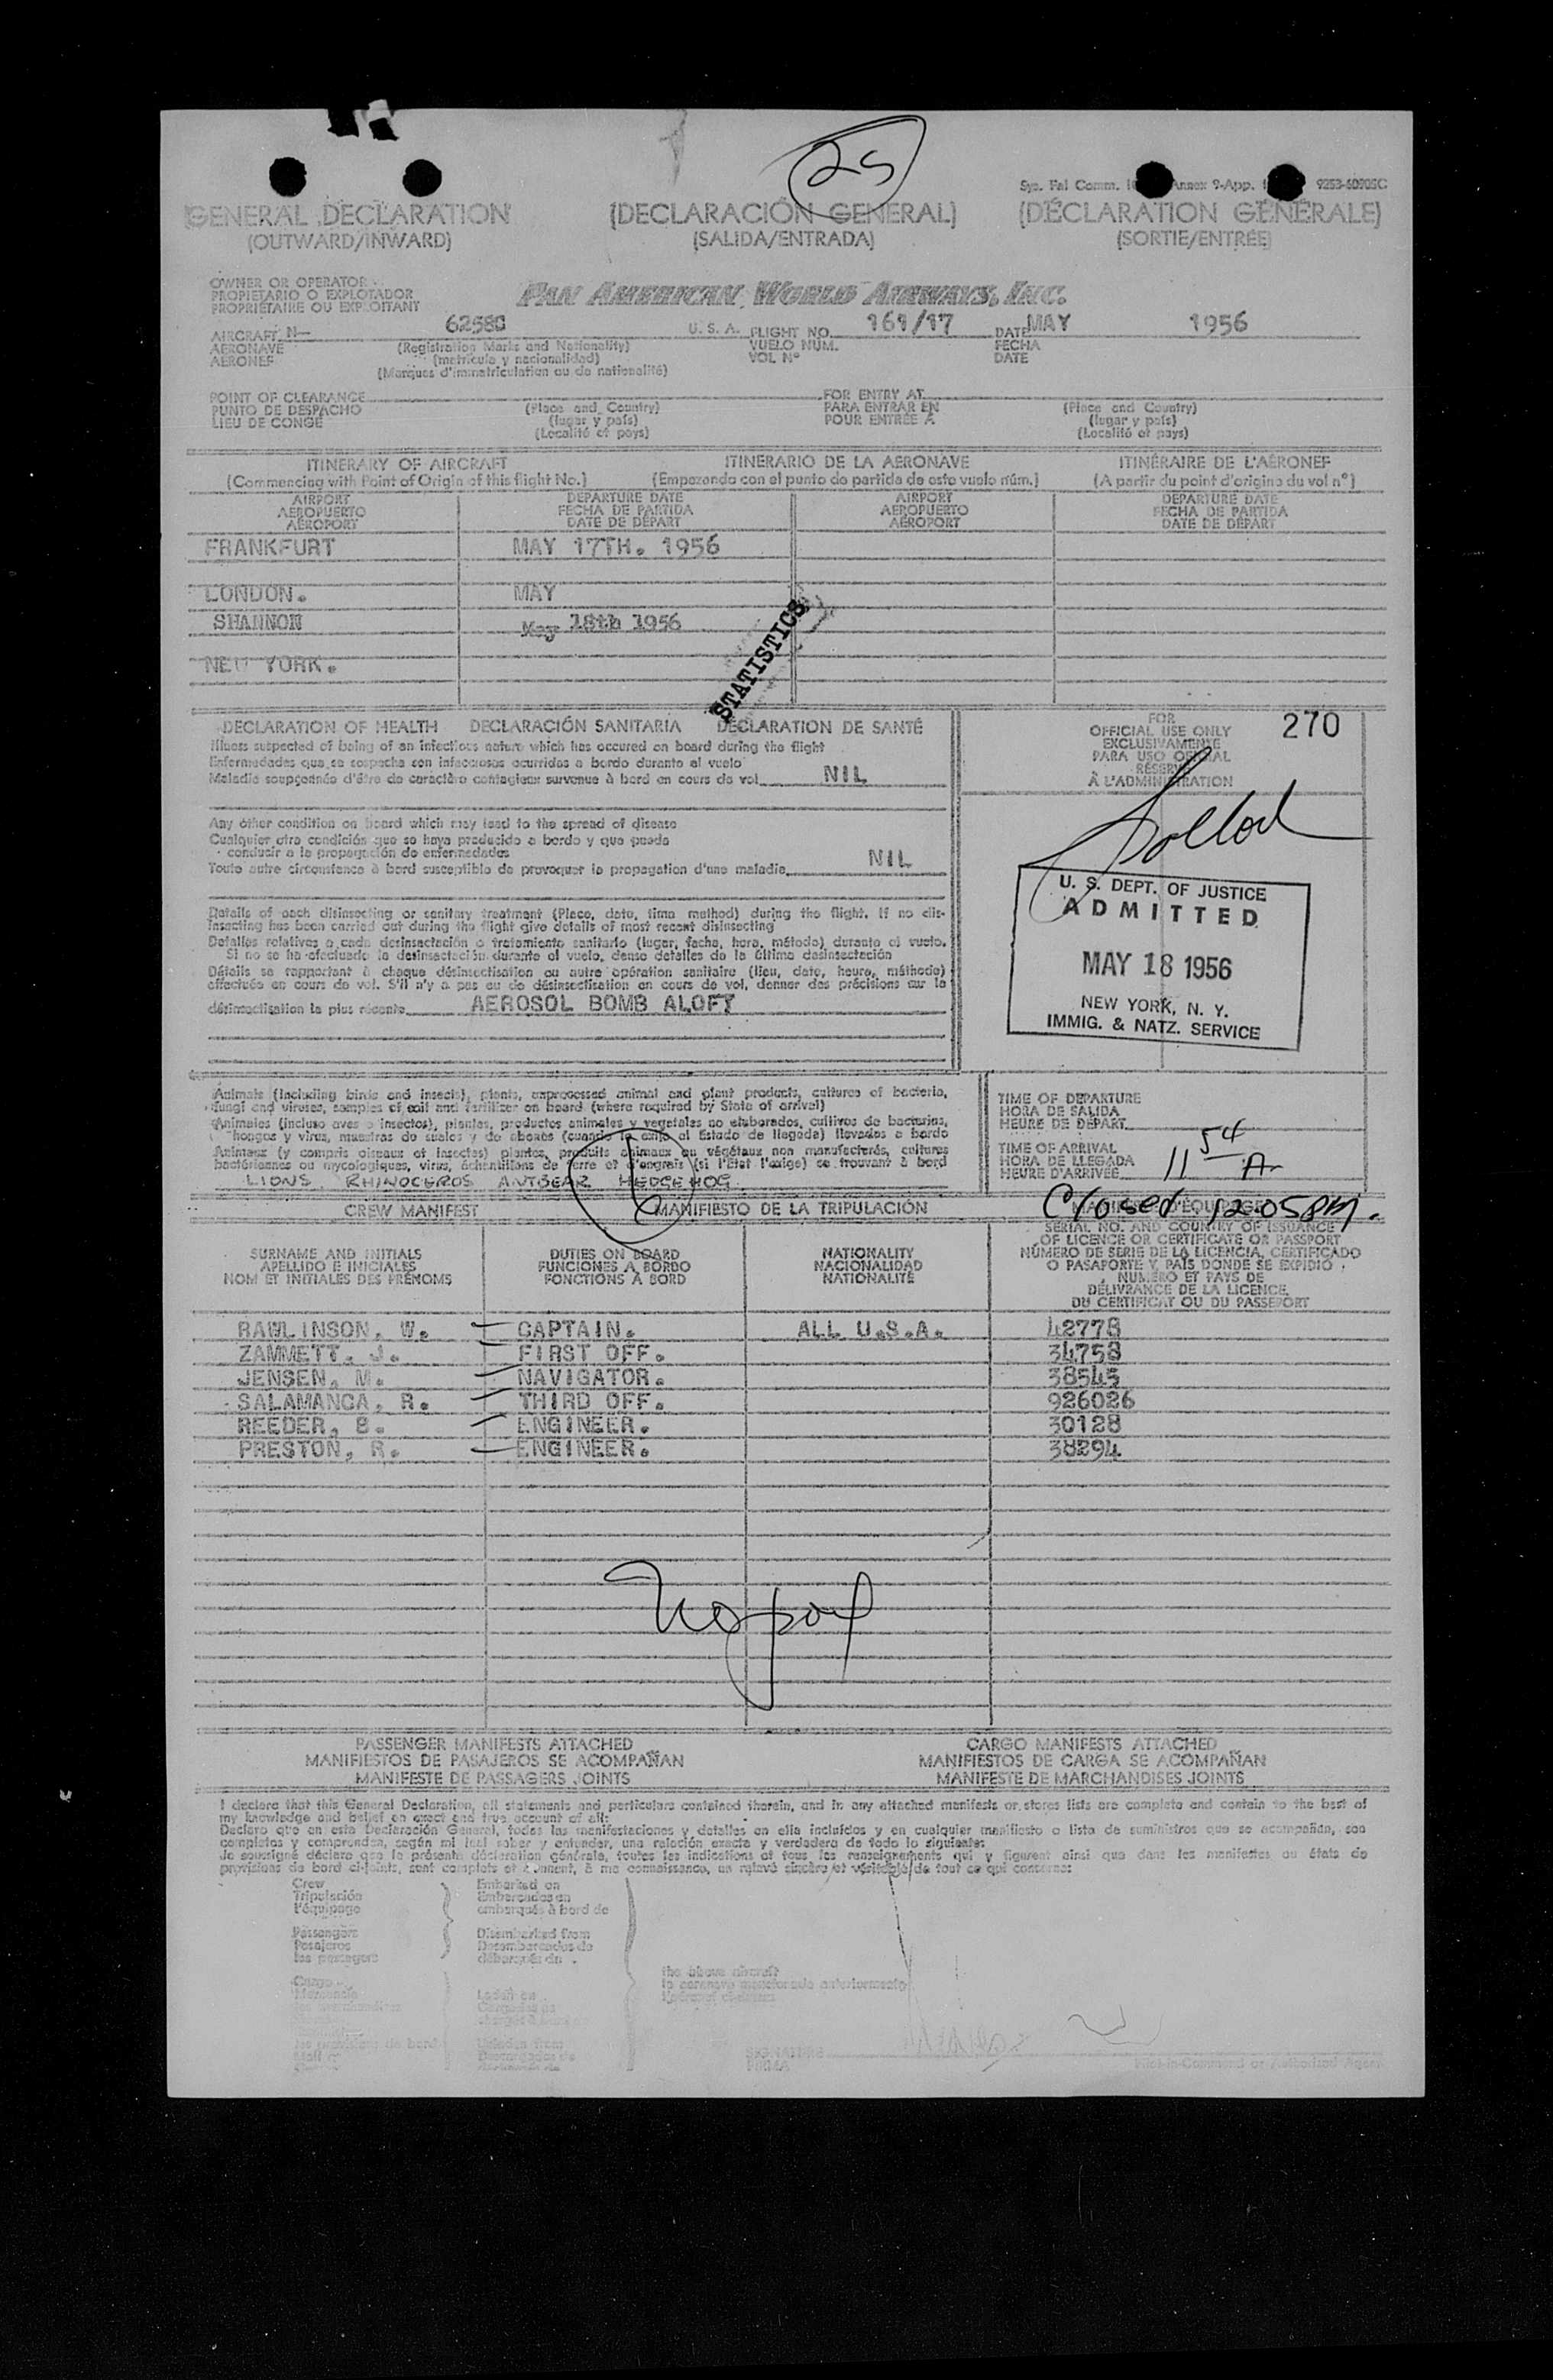 25
Annex 9-App. 9253-50705C
GENERAL DECLARATION (DECLARACIÓN GENERAL) (DÉCLARATION GÉNÉRALE)
(OUTWARD/INWARD) (SALIDA/ENTRADA) (SORTIE/ENTRÉE)
OWNER OR OPERATOR
PROPIETARIO O EXPLOTADOR
PROPRIÉTAIRE OU EXPLOITANT
PAN AMERICAN WORLD AIRWAYS, INC.
AIRCRAFT N— 6258C U. S. A. FLIGHT NO. 161/17 DATE MAY 1956
AERONAVE (Registration Marks and Nationality) VUELO NÚM. FECHA
AÉRONEF (matrícula y nacionalidad) VOL Nº DATE
(Marques d'immatriculation ou de nationalité)
POINT OF CLEARANCE FOR ENTRY AT
PUNTO DE DESPACHO (Place and Country) PARA ENTRAR EN (Place and Country)
LIEU DE CONGÉ (lugar y país) POUR ENTRÉE À (lugar y país)
(Localité et pays) (Localité et pays)
ITINERARY OF AIRCRAFT ITINERARIO DE LA AERONAVE ITINÉRAIRE DE L'AÉRONEF
(Commencing with Point of Origin of this flight No.) (Empezando con el punto de partida de este vuelo núm.) (A partir du point d'origine du vol nº)
AIRPORT DEPARTURE DATE AIRPORT DEPARTURE DATE
AEROPUERTO FECHA DE PARTIDA AEROPUERTO FECHA DE PARTIDA
AÉROPORT DATE DE DÉPART AÉROPORT DATE DE DÉPART
FRANKFURT MAY 17TH. 1956
LONDON. MAY
SHANNON May 18th 1956
NEW YORK.
STATISTICS
DECLARATION OF HEALTH DECLARACIÓN SANITARIA DECLARATION DE SANTÉ
Illness suspected of being of an infectious nature which has occured on board during the flight
Enfermedades que se sospecha son infecciosas ocurridas a bordo durante el vuelo
Maladie soupçonnée d'être de caractère contagieux survenue à bord en cours de vol NIL
Any other condition on board which may lead to the spread of disease
Cualquier otra condición que se haya producido a bordo y que pueda
conducir a la propagación de enfermedades
Toute autre circonstance à bord susceptible de provoquer la propagation d'une maladie NIL
Details of each disinsecting or sanitary treatment (Place, date, time method) during the flight. If no dis-
insecting has been carried out during the flight give details of most recent disinsecting
Detalles relativos a cada desinsectación o tratamiento sanitario (lugar, fecha, hora, método) durante el vuelo.
Si no se ha efectuado la desinsectación durante el vuelo, dense detalles de la última desinsectación
Détails se rapportant à chaque désinsectisation ou autre opération sanitaire (lieu, date, heure, méthode)
effectuée en cours de vol. S'il n'y a pas eu de désinsectisation en cours de vol, donner des précisions sur la
désinsectisation la plus récente AEROSOL BOMB ALOFT
FOR 270
OFFICIAL USE ONLY
EXCLUSIVAMENTE
PARA USO OFICIAL
RÉSERVÉ
À L'ADMINISTRATION
U. S. DEPT. OF JUSTICE
ADMITTED
MAY 18 1956
NEW YORK, N. Y.
IMMIG. & NATZ. SERVICE
Animals (including birds and insects), plants, unprocessed animal and plant products, cultures of bacteria,
fungi and viruses, samples of soil and fertilizer on board (where required by State of arrival)
Animales (incluso aves e insectos), plantas, productos animales y vegetales no elaborados, cultivos de bacterias,
hongos y virus, muestras de suelos y de abonos (cuando lo exija el Estado de llegada) llevados a bordo
Animaux (y compris oiseaux et insectes) plantes, produits animaux ou végétaux non manufacturés, cultures
bactériennes ou mycologiques, virus, échantillons de terre et d'engrais (si l'État l'exige) se trouvant à bord
LIONS RHINOCEROS ANTBEAR HEDGEHOG
TIME OF DEPARTURE
HORA DE SALIDA
HEURE DE DÉPART
TIME OF ARRIVAL
HORA DE LLEGADA
HEURE D'ARRIVÉE 11 54 A
Closed 12 05 PM.
CREW MANIFEST MANIFIESTO DE LA TRIPULACIÓN
SURNAME AND INITIALS DUTIES ON BOARD NATIONALITY SERIAL NO. AND COUNTRY OF ISSUANCE
APELLIDO E INICIALES FUNCIONES A BORDO NACIONALIDAD OF LICENCE OR CERTIFICATE OR PASSPORT
NOM ET INITIALES DES PRÉNOMS FONCTIONS À BORD NATIONALITÉ NÚMERO DE SERIE DE LA LICENCIA, CERTIFICADO
O PASAPORTE Y PAÍS DONDE SE EXPIDIÓ
NUMÉRO ET PAYS DE
DÉLIVRANCE DE LA LICENCE,
DU CERTIFICAT OU DU PASSEPORT
RAWLINSON, W. CAPTAIN. ALL U.S.A. 42778
ZAMMETT, J. FIRST OFF. 34758
JENSEN, M. NAVIGATOR. 38545
SALAMANCA, R. THIRD OFF. 926026
REEDER, B. ENGINEER. 30128
PRESTON, R. ENGINEER. 38294
PASSENGER MANIFESTS ATTACHED CARGO MANIFESTS ATTACHED
MANIFIESTOS DE PASAJEROS SE ACOMPAÑAN MANIFIESTOS DE CARGA SE ACOMPAÑAN
MANIFESTE DE PASSAGERS JOINTS MANIFESTE DE MARCHANDISES JOINTS
I declare that this General Declaration, all statements and particulars contained therein, and in any attached manifests or stores lists are complete and contain to the best of
my knowledge and belief an exact and true account of all:
Declaro que en esta Declaración General, todas las manifestaciones y detalles en ella incluídos y en cualquier manifiesto o lista de suministros que se acompañan, son
completos y comprenden, según mi leal saber y entender, una relación exacta y verdadera de todo lo siguiente:
Je soussigné déclare que la présente déclaration générale, toutes les indications et tous les renseignements qui y figurent ainsi que dans les manifestes ou états de
provisions de bord ci-joints, sont complets et donnent, à ma connaissance, un relevé sincère et véritable de tout ce qui concerne:
Crew Embarked on
Tripulación Embarcados en
l'équipage embarqués à bord de
Passengers Disembarked from
Pasajeros Desembarcados de
les passagers débarqués de
Cargo the above aircraft
la aeronave mencionada anteriormente
Laden on
les provisions de bord Unladen from
SIGNATURE
FIRMA Pilot-in-Command or Authorized Agent